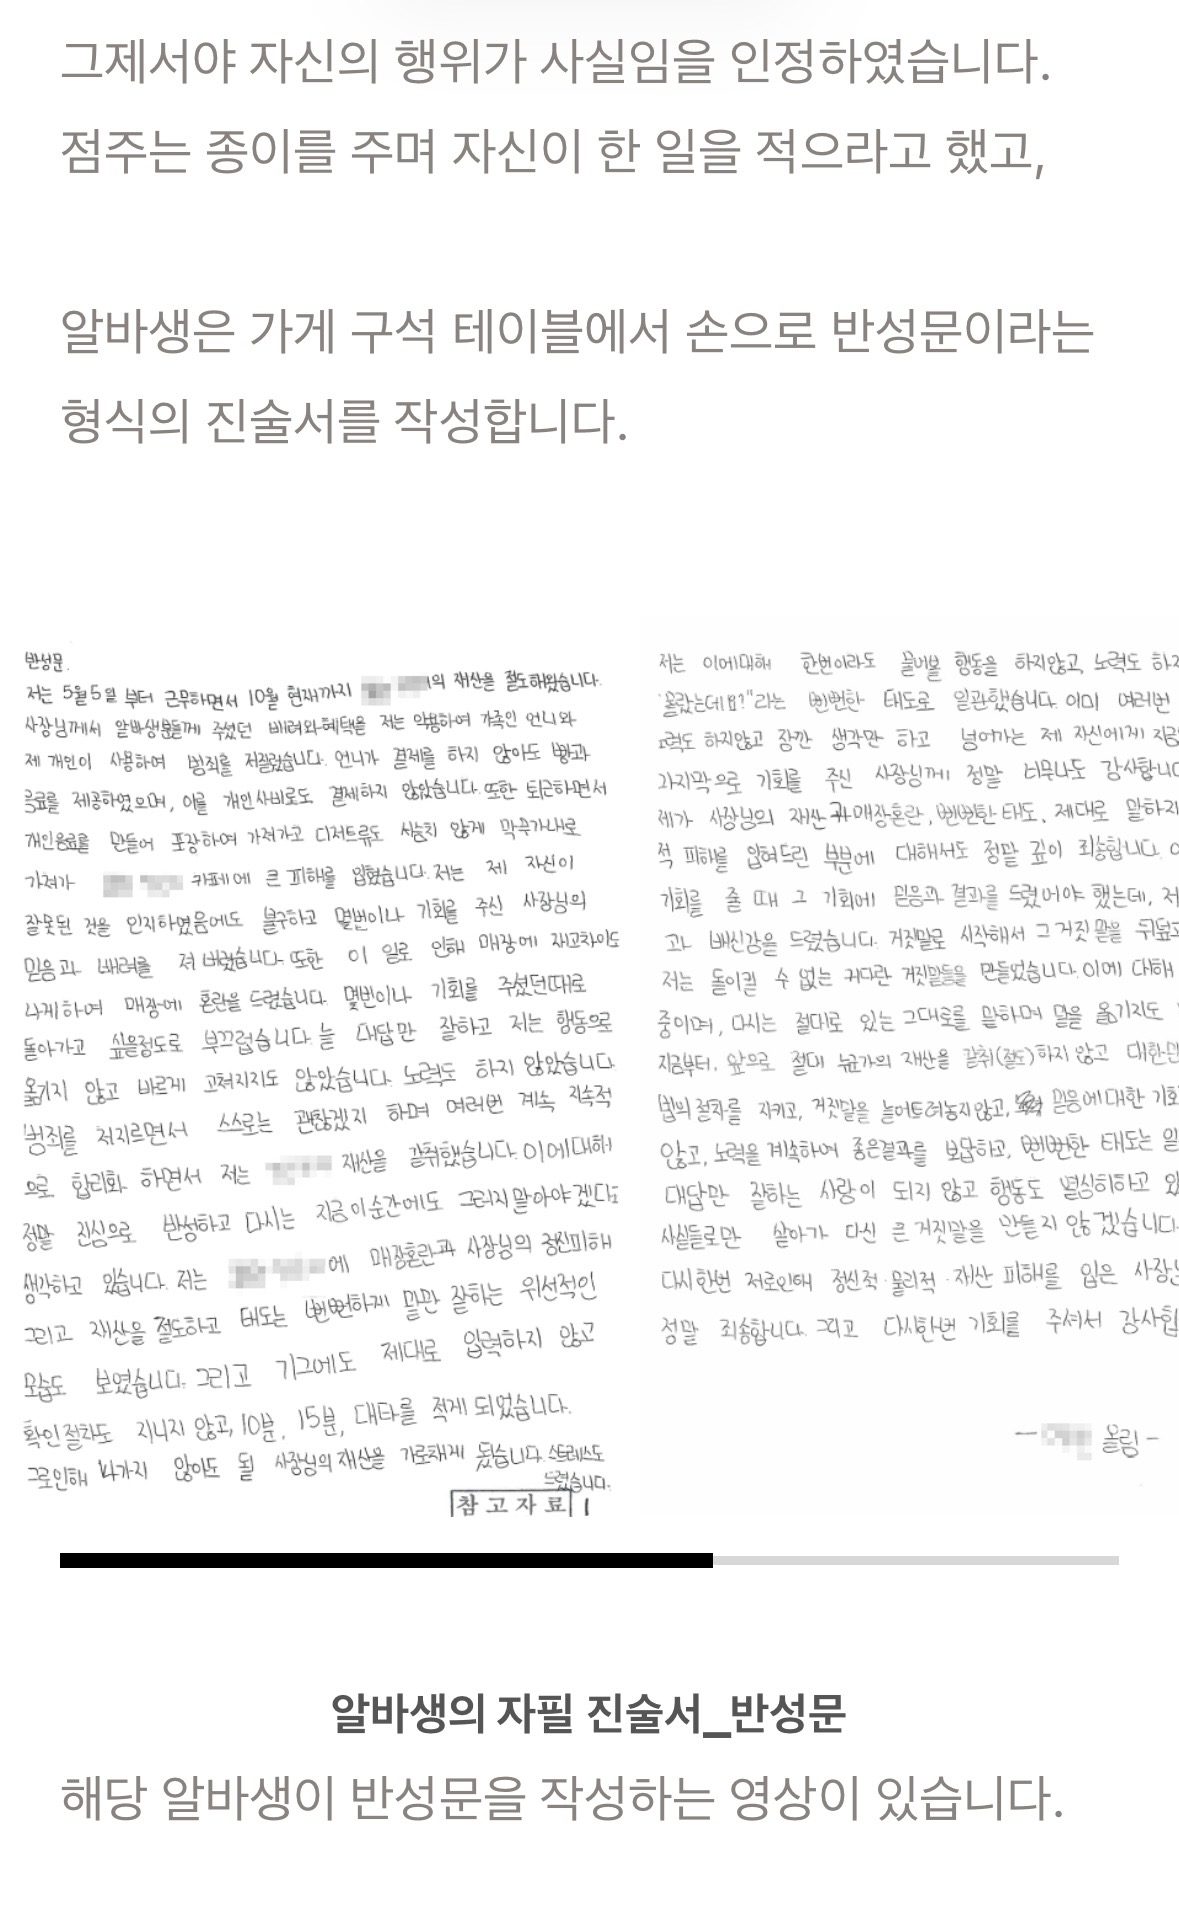 그제서야 자신의 행위가 사실임을 인정하였습니다.
점주는 종이를 주며 자신이 한 일을 적으라고 했고,
알바생은 가게 구석 테이블에서 손으로 반성문이라는
형식의 진술서를 작성합니다.
반성문.
저는 5월5일 부터 근무하면서 10월 현재까지 의 재산을 절도해왔습니다.
사장님께서 알바생분들께 주셨던 배려와 혜택을 저는 악용하여 가족인 언니와
제 개인이 사용하여 범죄를 저질렀습니다. 언니가 결제를 하지 않아도 빵과
음료를 제공하였으며, 이를 개인사비로도 결제하지 않았습니다. 또한 퇴근하면서
개인음료를 만들어 포장하여 가져가고 디저트류도 서슴치 않게 막무가내로
가져가 카페에 큰 피해를 입혔습니다. 저는 제 자신이
잘못된 것을 인지하였음에도 불구하고 몇번이나 기회를 주신 사장님의
믿음과 배려를 져버렸습니다. 또한 이 일로 인해 매장에 재고차이도
나게하여 매장에 혼란을 드렸습니다. 몇번이나 기회를 주셨던때로
돌아가고 싶을정도로 부끄럽습니다. 늘 대답만 잘하고 저는 행동으로
옮기지 않고 바르게 고쳐지지도 않았습니다. 노력도 하지 않았습니다.
범죄를 저지르면서 스스로는 괜찮겠지 하며 여러번 계속 지속적
으로 합리화 하면서 저는 재산을 갈취했습니다. 이에대해
정말 진심으로 반성하고 다시는 지금 이순간에도 그러지말아야겠다는
생각하고 있습니다. 저는 에 매장혼란과 사장님의 정신피해
그리고 재산을 절도하고 태도는 뻔뻔하게 말만 잘하는 위선적인
모습도 보였습니다. 그리고 기그에도 제대로 입력하지 않고
확인절차도 지니지 않고, 10분, 15분, 대타를 적게 되었습니다.
그로인해 나가지 않아도 될 사장님의 재산을 가로채게 됬습니다. 스트레스도
드렸습니다.
참고자료 1
저는 이에대해 한번이라도 물어볼 행동을 하지않고, 노력도 하지
"몰랐는데요?"라는 뻔뻔한 태도로 일관했습니다. 이미 여러번
노력도 하지않고 잠깐 생각만 하고 넘어가는 제 자신에게 지금
마지막으로 기회를 주신 사장님께 정말 너무나도 감사합니다
제가 사장님의 재산과 매장혼란, 뻔뻔한 태도, 제대로 말하지
적 피해를 입혀드린 부분에 대해서도 정말 깊이 죄송합니다.
기회를 줄 때 그 기회에 믿음과 결과를 드렸어야 했는데, 저
고나 배신감을 드렸습니다. 거짓말로 시작해서 그 거짓말을 뒤덮고
저는 돌이킬 수 없는 커다란 거짓말들을 만들었습니다. 이에 대해
중이며, 다시는 절대로 있는 그대로를 말하며 말을 옮기지도
지금부터, 앞으로 절대 누군가의 재산을 갈취(절도)하지 않고 대한민
법의 절차를 지키고, 거짓말을 늘어트려놓지않고, 믿음에 대한 기회
않고, 노력을 계속하여 좋은결과를 보답하고, 뻔뻔한 태도는 일
대답만 잘하는 사람이 되지 않고 행동도 열심히하고 있
사실들로만 살아가 다신 큰 거짓말을 만들지 않겠습니다.
다시한번 저로인해 정신적·물리적·재산 피해를 입은 사장님
정말 죄송합니다. 그리고 다시한번 기회를 주셔서 감사합
- 올림 -
알바생의 자필 진술서_반성문
해당 알바생이 반성문을 작성하는 영상이 있습니다.